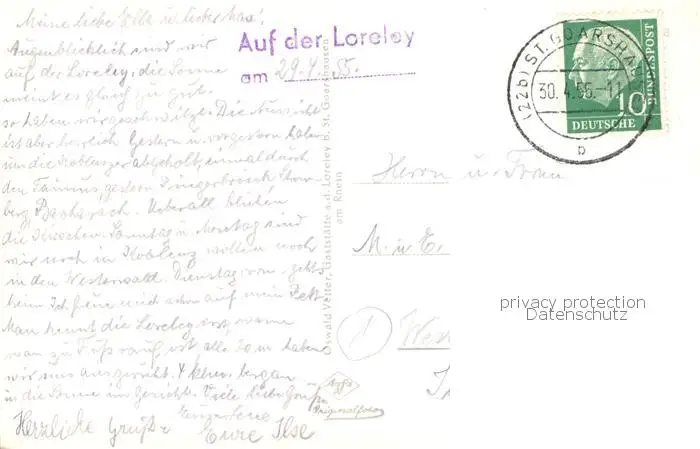 Meine liebe Elbe u. lieber Max!
Augenblicklich sind wir
auf der Loreley, die Sonne
meint es gleich zu gut.
so haben wir geschwitzt. Die Aussicht
ist aber herrlich Gestern u. vorgestern haben
uns die Koblenzer abgeholt, einmal durch
den Taunus, gestern
berg, Bacharach. Ueberall blühen
die Kirschen. Sonntag u. Montag sind
wir noch in Koblenz wollen noch
in den Westerwald. Dienstag geht's
heim Ich freue mich schon auf mein Bett
Man kennt die Loreley erst, wenn
man zu Fuß rauf ist alle 20 m haben
wir uns ausgeruht. 4 klm. bergan
in die Sonne im Gesicht. Viele liebe Grüße
Herzliche Grüße Eure Ilse
Auf der Loreley
am 29.4.55.
Oswald Vetter, Gaststätte a.d. Loreley b. St. Goarshausen
am Rhein
(22b) ST. GOARSHAUSEN
30.4.55.-11
b
10
DEUTSCHE
BUNDESPOST
Herrn u. Frau
M. u. E.
privacy protection
Datenschutz
Agfa
Originalfoto